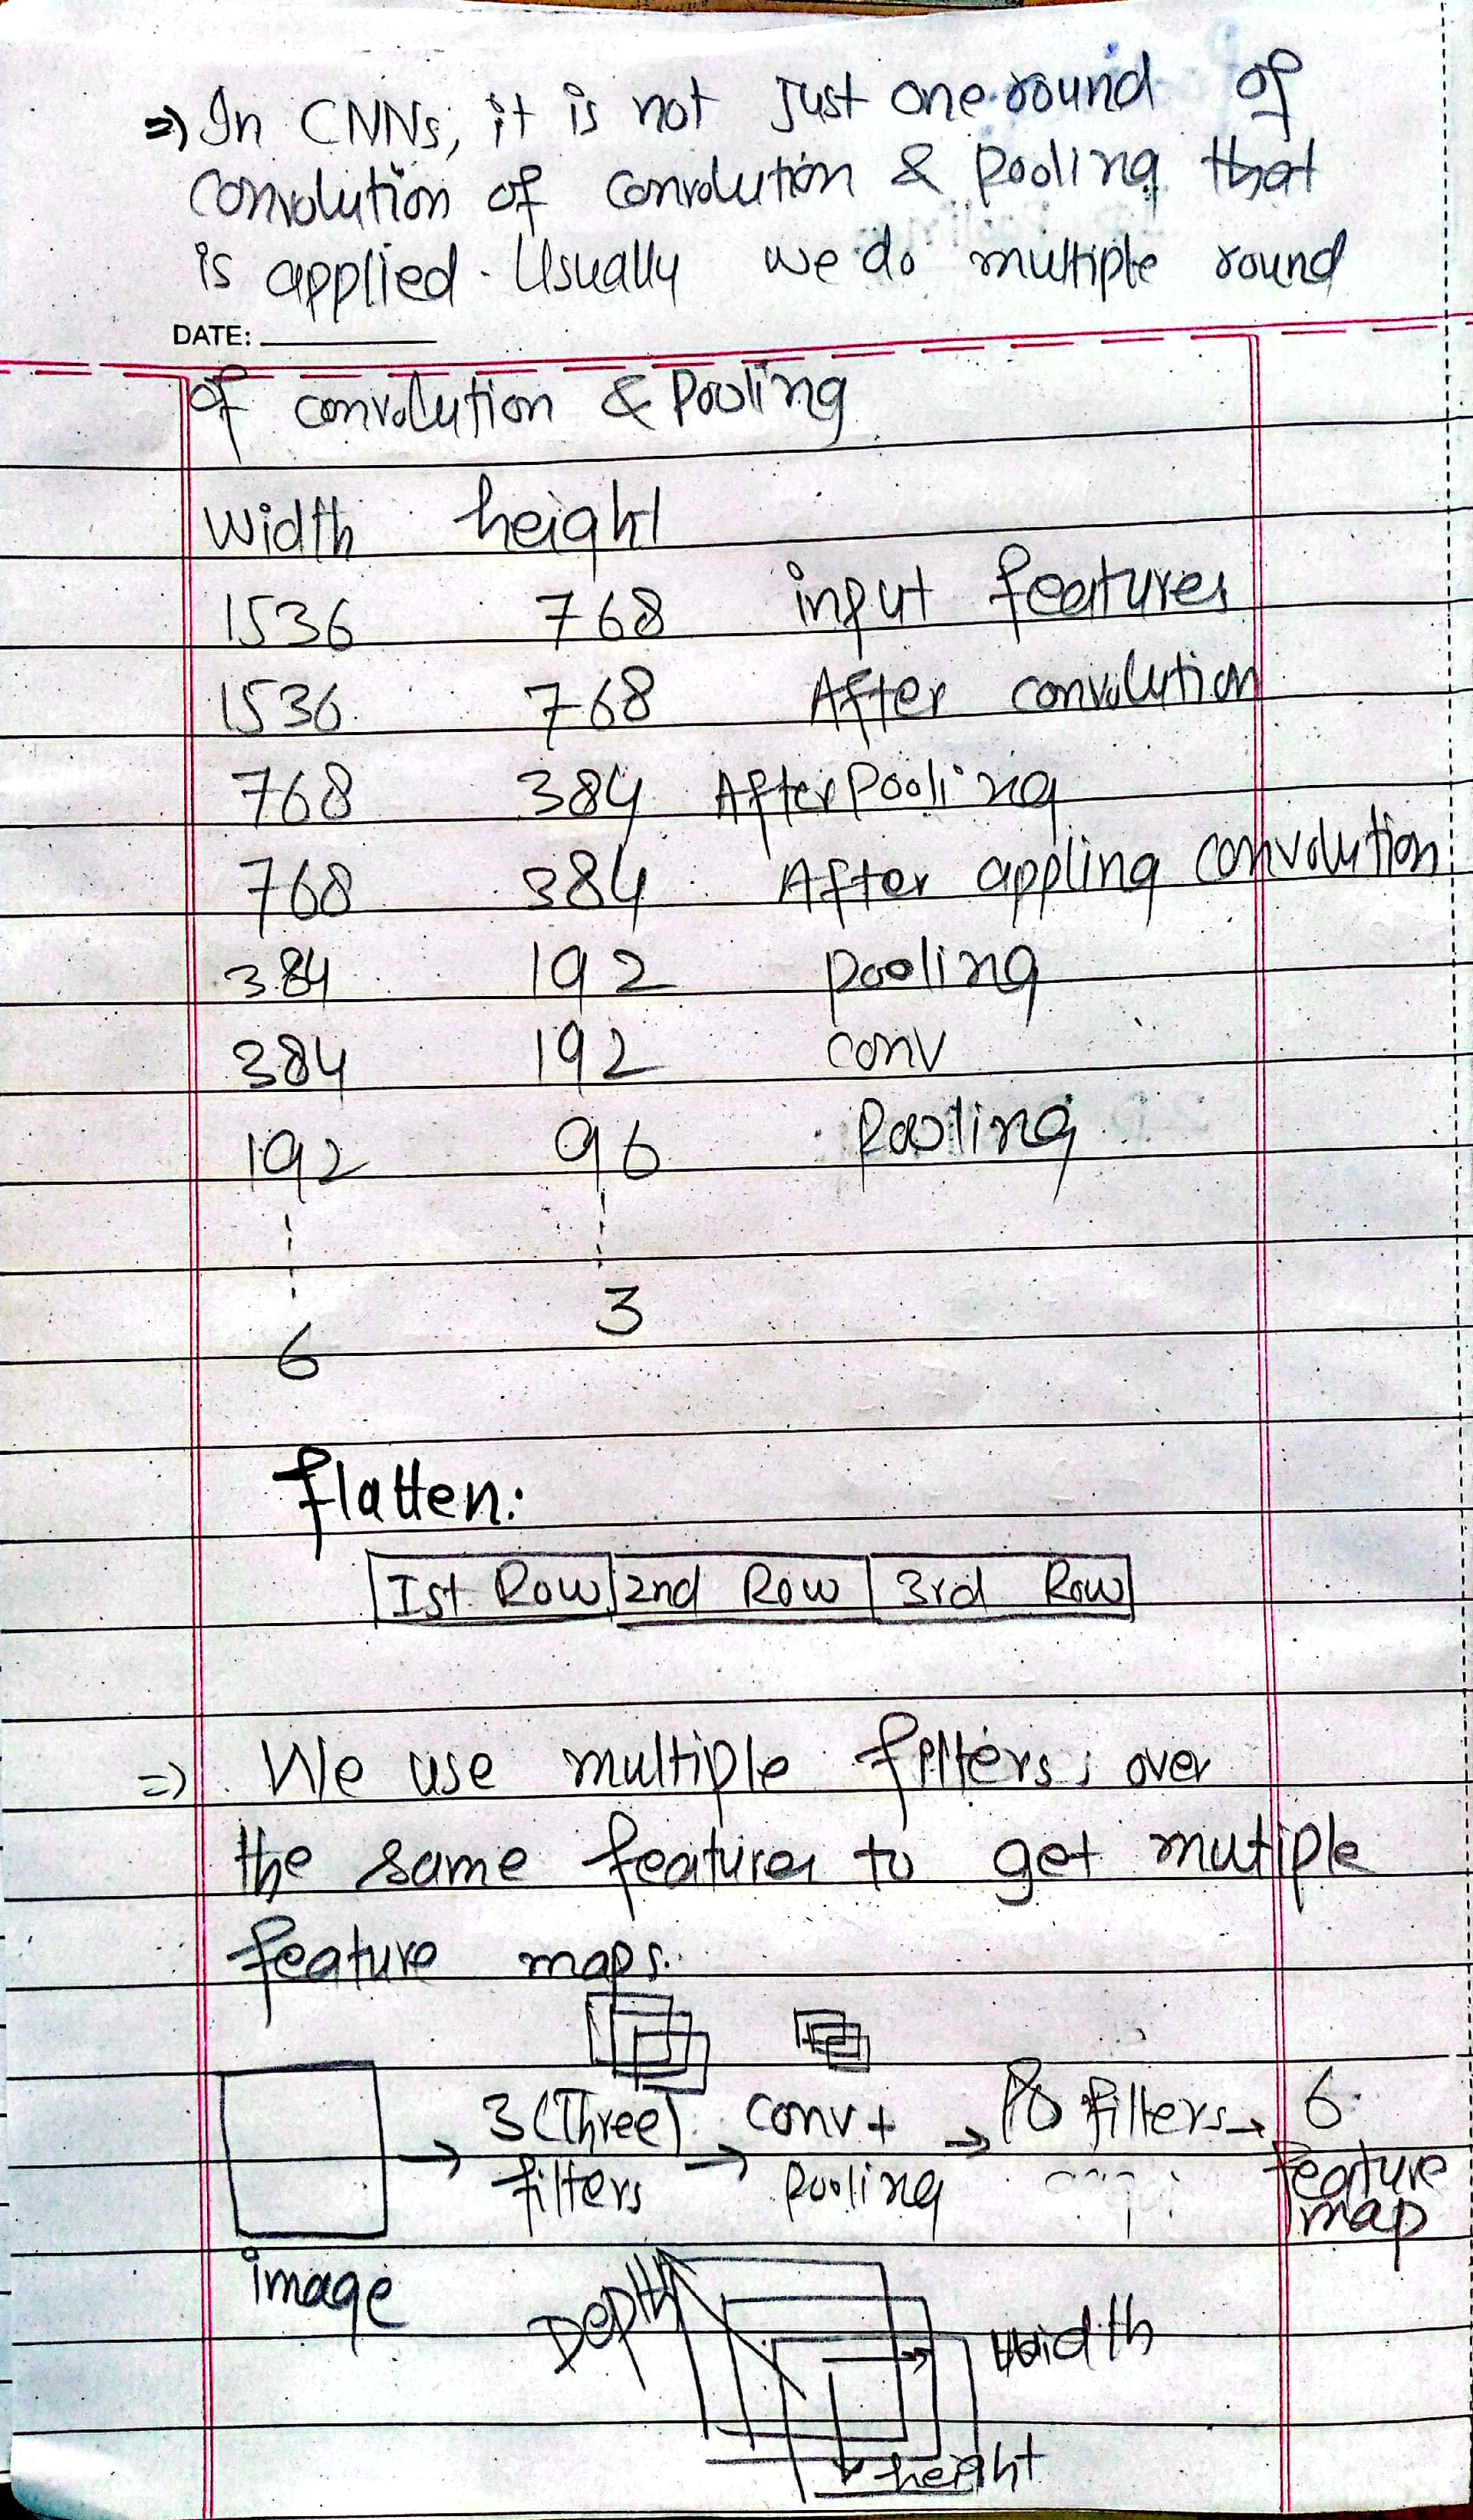 ⇒ In CNNs, it is not Just one round of
convolution of convolution & pooling that
is applied. Usually we do multiple round
DATE:
of convolution & Pooling
width height
1536 768 input features
1536 768 After convolution
768 384 After Pooling
768 384 After appling convolution
384 192 pooling
384 192 conv
192 96 Pooling
3
6
flatten:
Ist Row 2nd Row 3rd Row
⇒ We use multiple filters over
the same features to get mutiple
feature maps.
3 (Three) conv + filters → 6
→ filters → pooling → feature
map
image
Depth
width
height